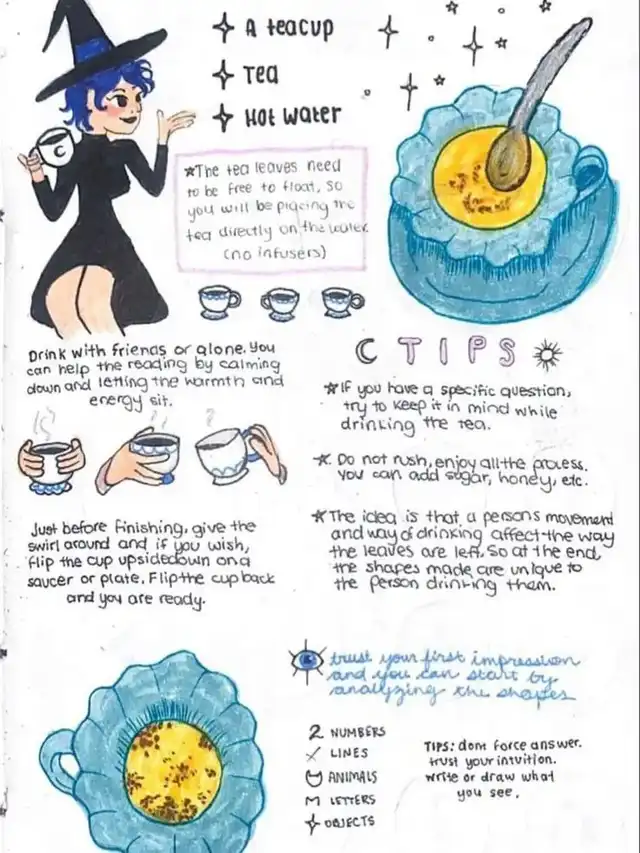 A teacup
Tea
Hot water
★The tea leaves need
to be free to float, so
you will be placing the
tea directly on the water.
(no infusers)
Drink with friends or alone. You
can help the reading by calming
down and letting the warmth and
energy sit.
Just before finishing, give the
swirl around and if you wish,
flip the cup upsidedown on a
saucer or plate. Flip the cup back
and you are ready.
TIPS
★If you have a specific question,
try to keep it in mind while
drinking the tea.
★ Do not rush, enjoy all the process.
you can add sugar, honey, etc.
★The idea is that a persons movement
and way of drinking affect the way
the leaves are left. So at the end,
the shapes made are unique to
the person drinking them.
trust your first impression
and you can start by
analyzing the shapes
2 NUMBERS
LINES
ANIMALS
M LETTERS
OBJECTS
TIPS: dont force answer.
trust your intuition.
write or draw what
you see.